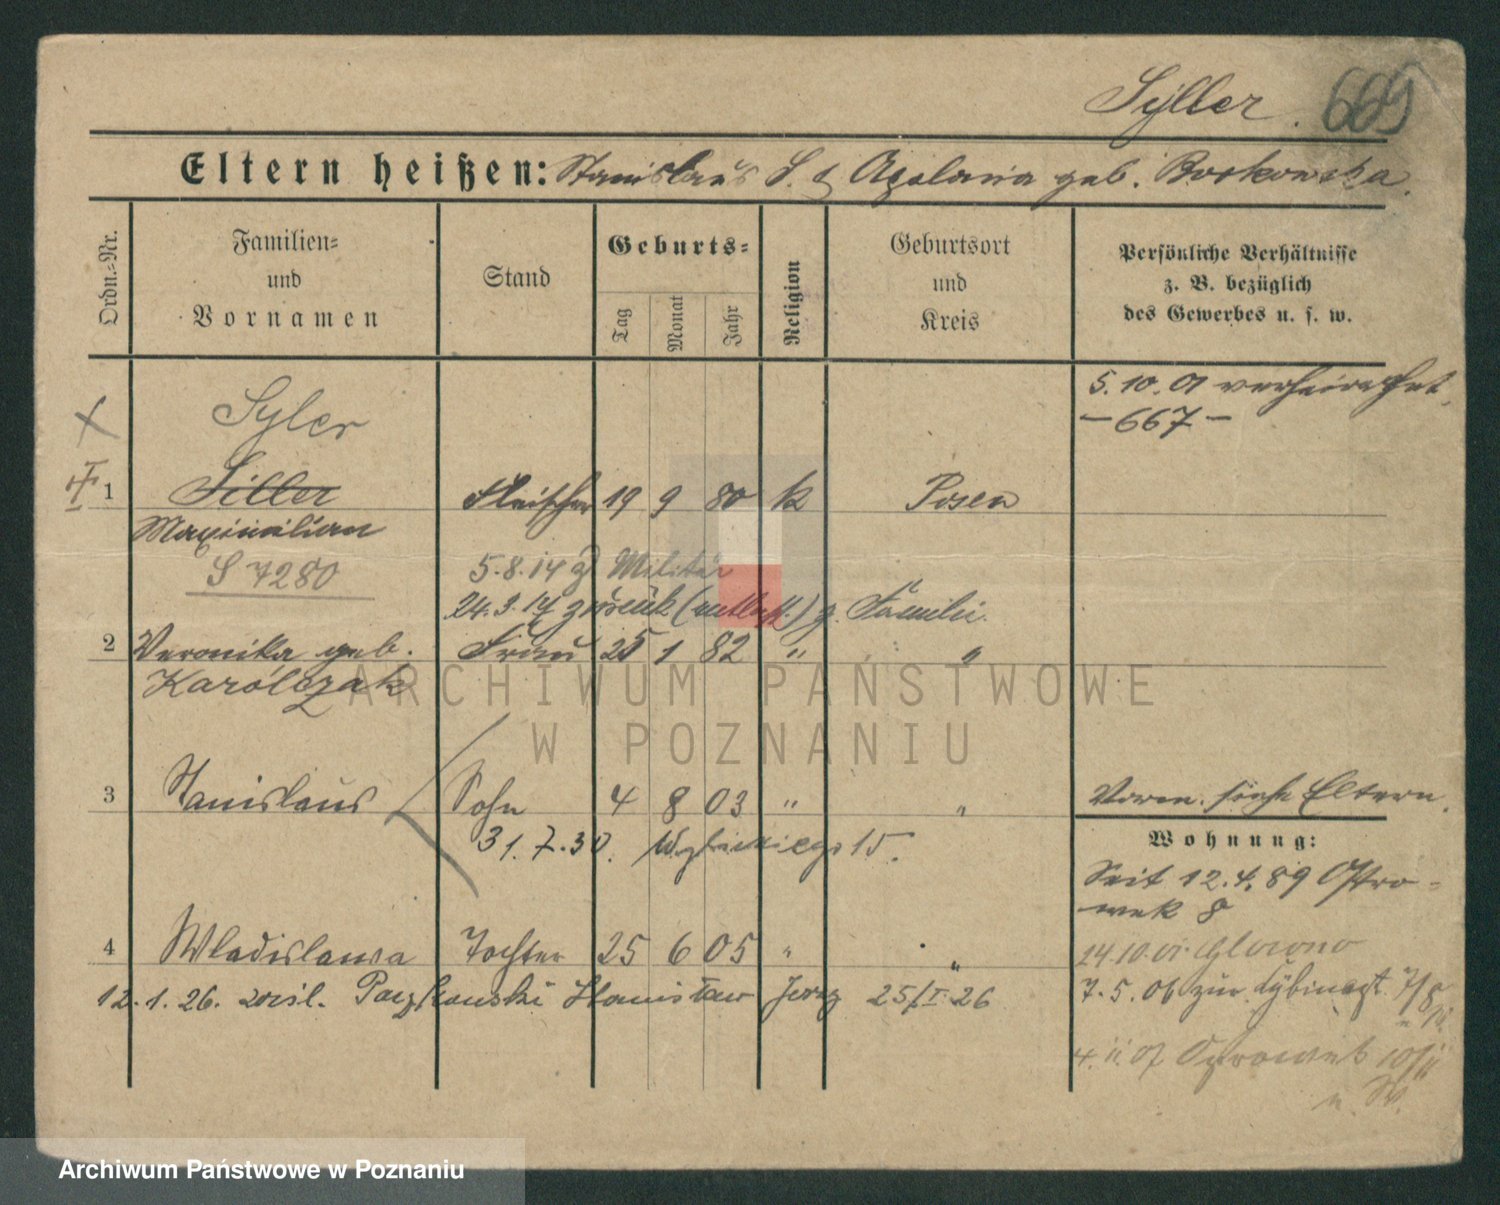 Syller. 669
Eltern heißen: Stanislaus S. & Apolonia geb. Borkowska.
Ordn.=Nr.
Familien=
und
Vornamen
Stand
Geburts=
Tag
Monat
Jahr
Religion
Geburtsort
und
Kreis
Persönliche Verhältnisse
z. B. bezüglich
des Gewerbes u. s. w.
5.10.01 verheirathet.
– 667 –
Syler
1 Siller Fleischer 19 9 80 k Posen
Maximilian
S 7280
5.8.14 z Militär
24.3.17 zurück (entlass.) z. Familie.
2 Veronika geb. Frau 25 1 82 " "
Karolczak
3 Stanislaus Sohn 4 8 03 " "
31.7.30. 15.
Vorm. siehe Eltern.
Wohnung:
Seit 12.4.89 Ostro-
wek 8
4 Wladislawa Tochter 25 6 05 " "
12.1.26. Stanisław Jerzy 25/I 26
14.10.01. Glowno
7.5.06 zur
4.11.07 Ostrowek 10/11
ARCHIWUM PAŃSTWOWE
W POZNANIU
Archiwum Państwowe w Poznaniu